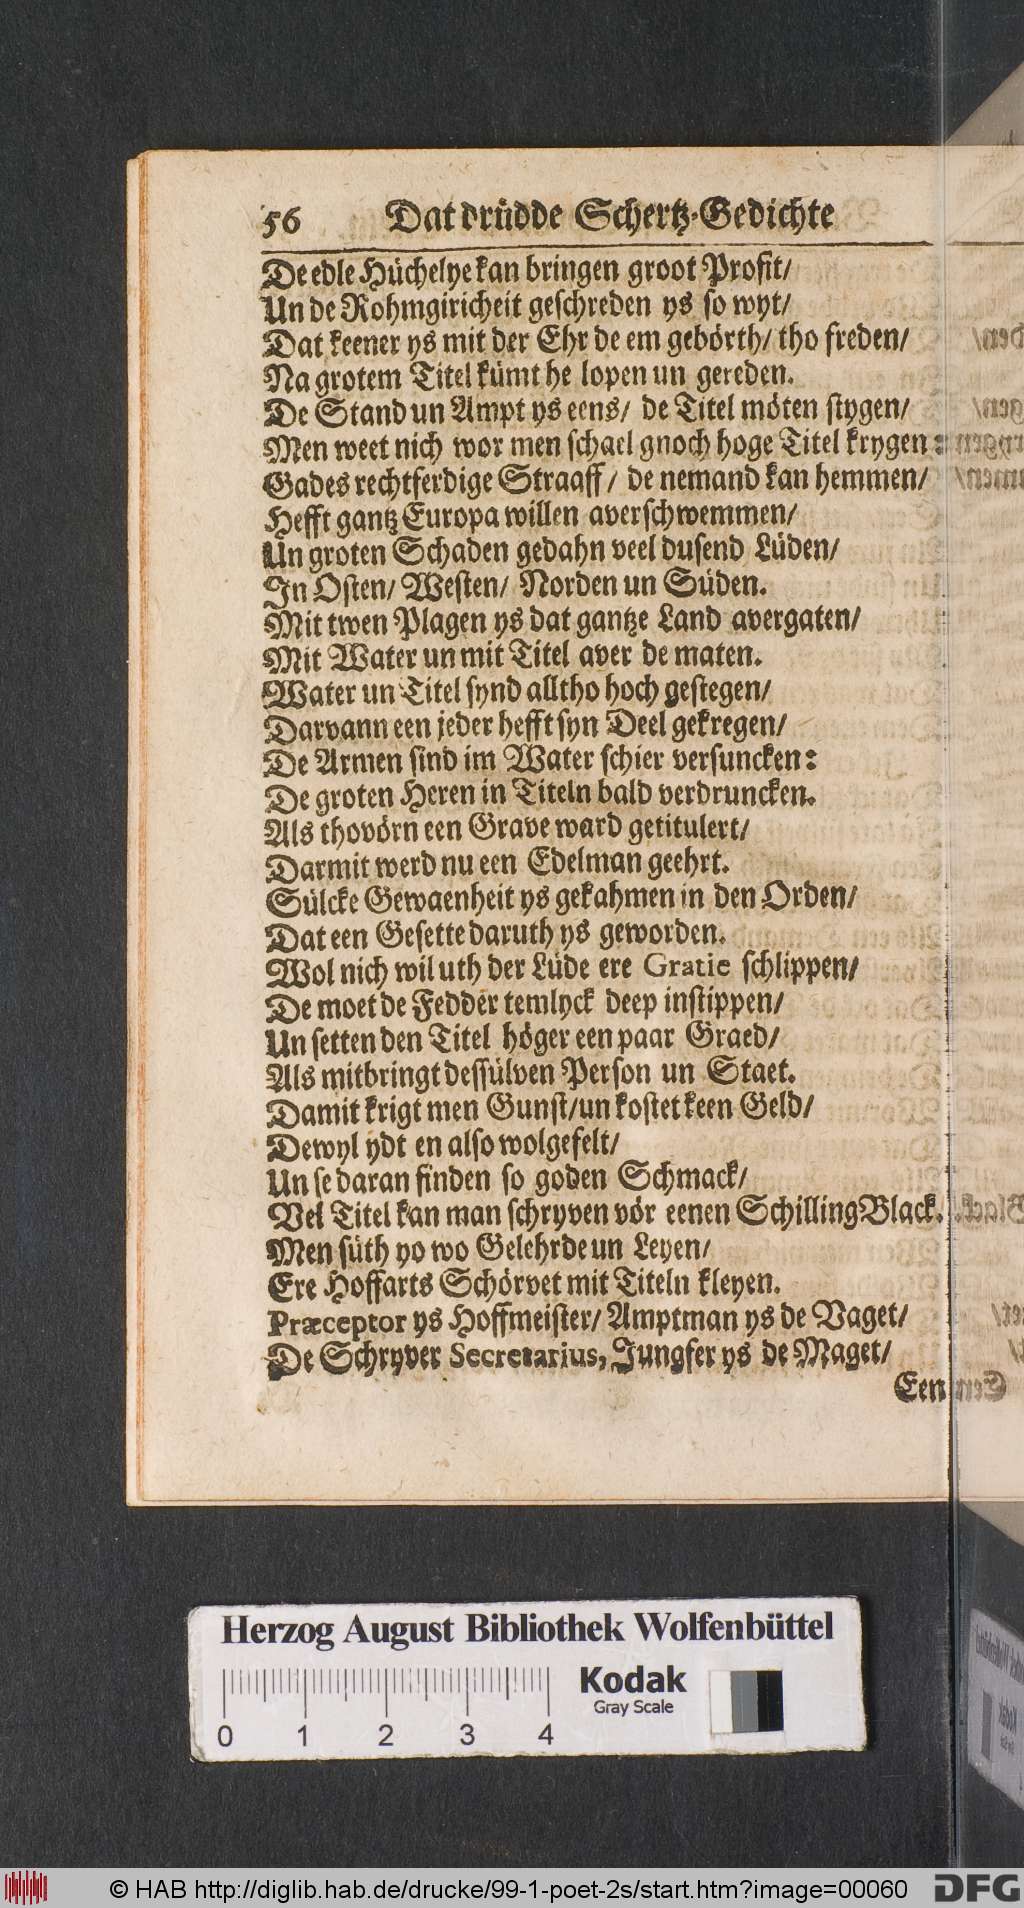 56 Dat drüdde Schertz-Gedichte
De edle Hüchelye kan bringen groot Profit/
Un de Rohmgiricheit geschreden ys so wyt/
Dat keener ys mit der Ehr de em gebörth/ tho freden/
Na grotem Titel kümt he lopen un gereden.
De Stand un Ampt ys eens/ de Titel möten stygen/
Men weet nich wor men schael gnoch hoge Titel krygen:
Gades rechtferdige Straaff/ de nemand kan hemmen/
Hefft gantz Europa willen averschwemmen/
Un groten Schaden gedahn veel dusend Lüden/
In Osten/ Westen/ Norden un Süden.
Mit twen Plagen ys dat gantze Land avergaten/
Mit Water un mit Titel aver de maten.
Water un Titel synd alltho hoch gestegen/
Darvann een jeder hefft syn Deel gekregen/
De Armen sind im Water schier versuncken:
De groten Heren in Titeln bald verdruncken.
Als thovörn een Grave ward getitulert/
Darmit werd nu een Edelman geehrt.
Sülcke Gewaenheit ys gekahmen in den Orden/
Dat een Gesette daruth ys geworden.
Wol nich wil uth der Lüde ere Gratie schlippen/
De moet de Fedder temlyck deep instippen/
Un setten den Titel höger een paar Graed/
Als mitbringt dessülven Person un Staet.
Damit krigt men Gunst/ un kostet keen Geld/
Dewyl ydt en also wolgefelt/
Un se daran finden so goden Schmack/
Vel Titel kan man schryven vör eenen Schilling Black.
Men süth yo wo Gelehrde un Leyen/
Ere Hoffarts Schörvet mit Titeln kleyen.
Præceptor ys Hoffmeister/ Amptman ys de Vaget/
De Schryver Secretarius, Jungfer ys de Maget/
Een
Herzog August Bibliothek Wolfenbüttel
Kodak
Gray Scale
0 1 2 3 4
© HAB http://diglib.hab.de/drucke/99-1-poet-2s/start.htm?image=00060
DFG